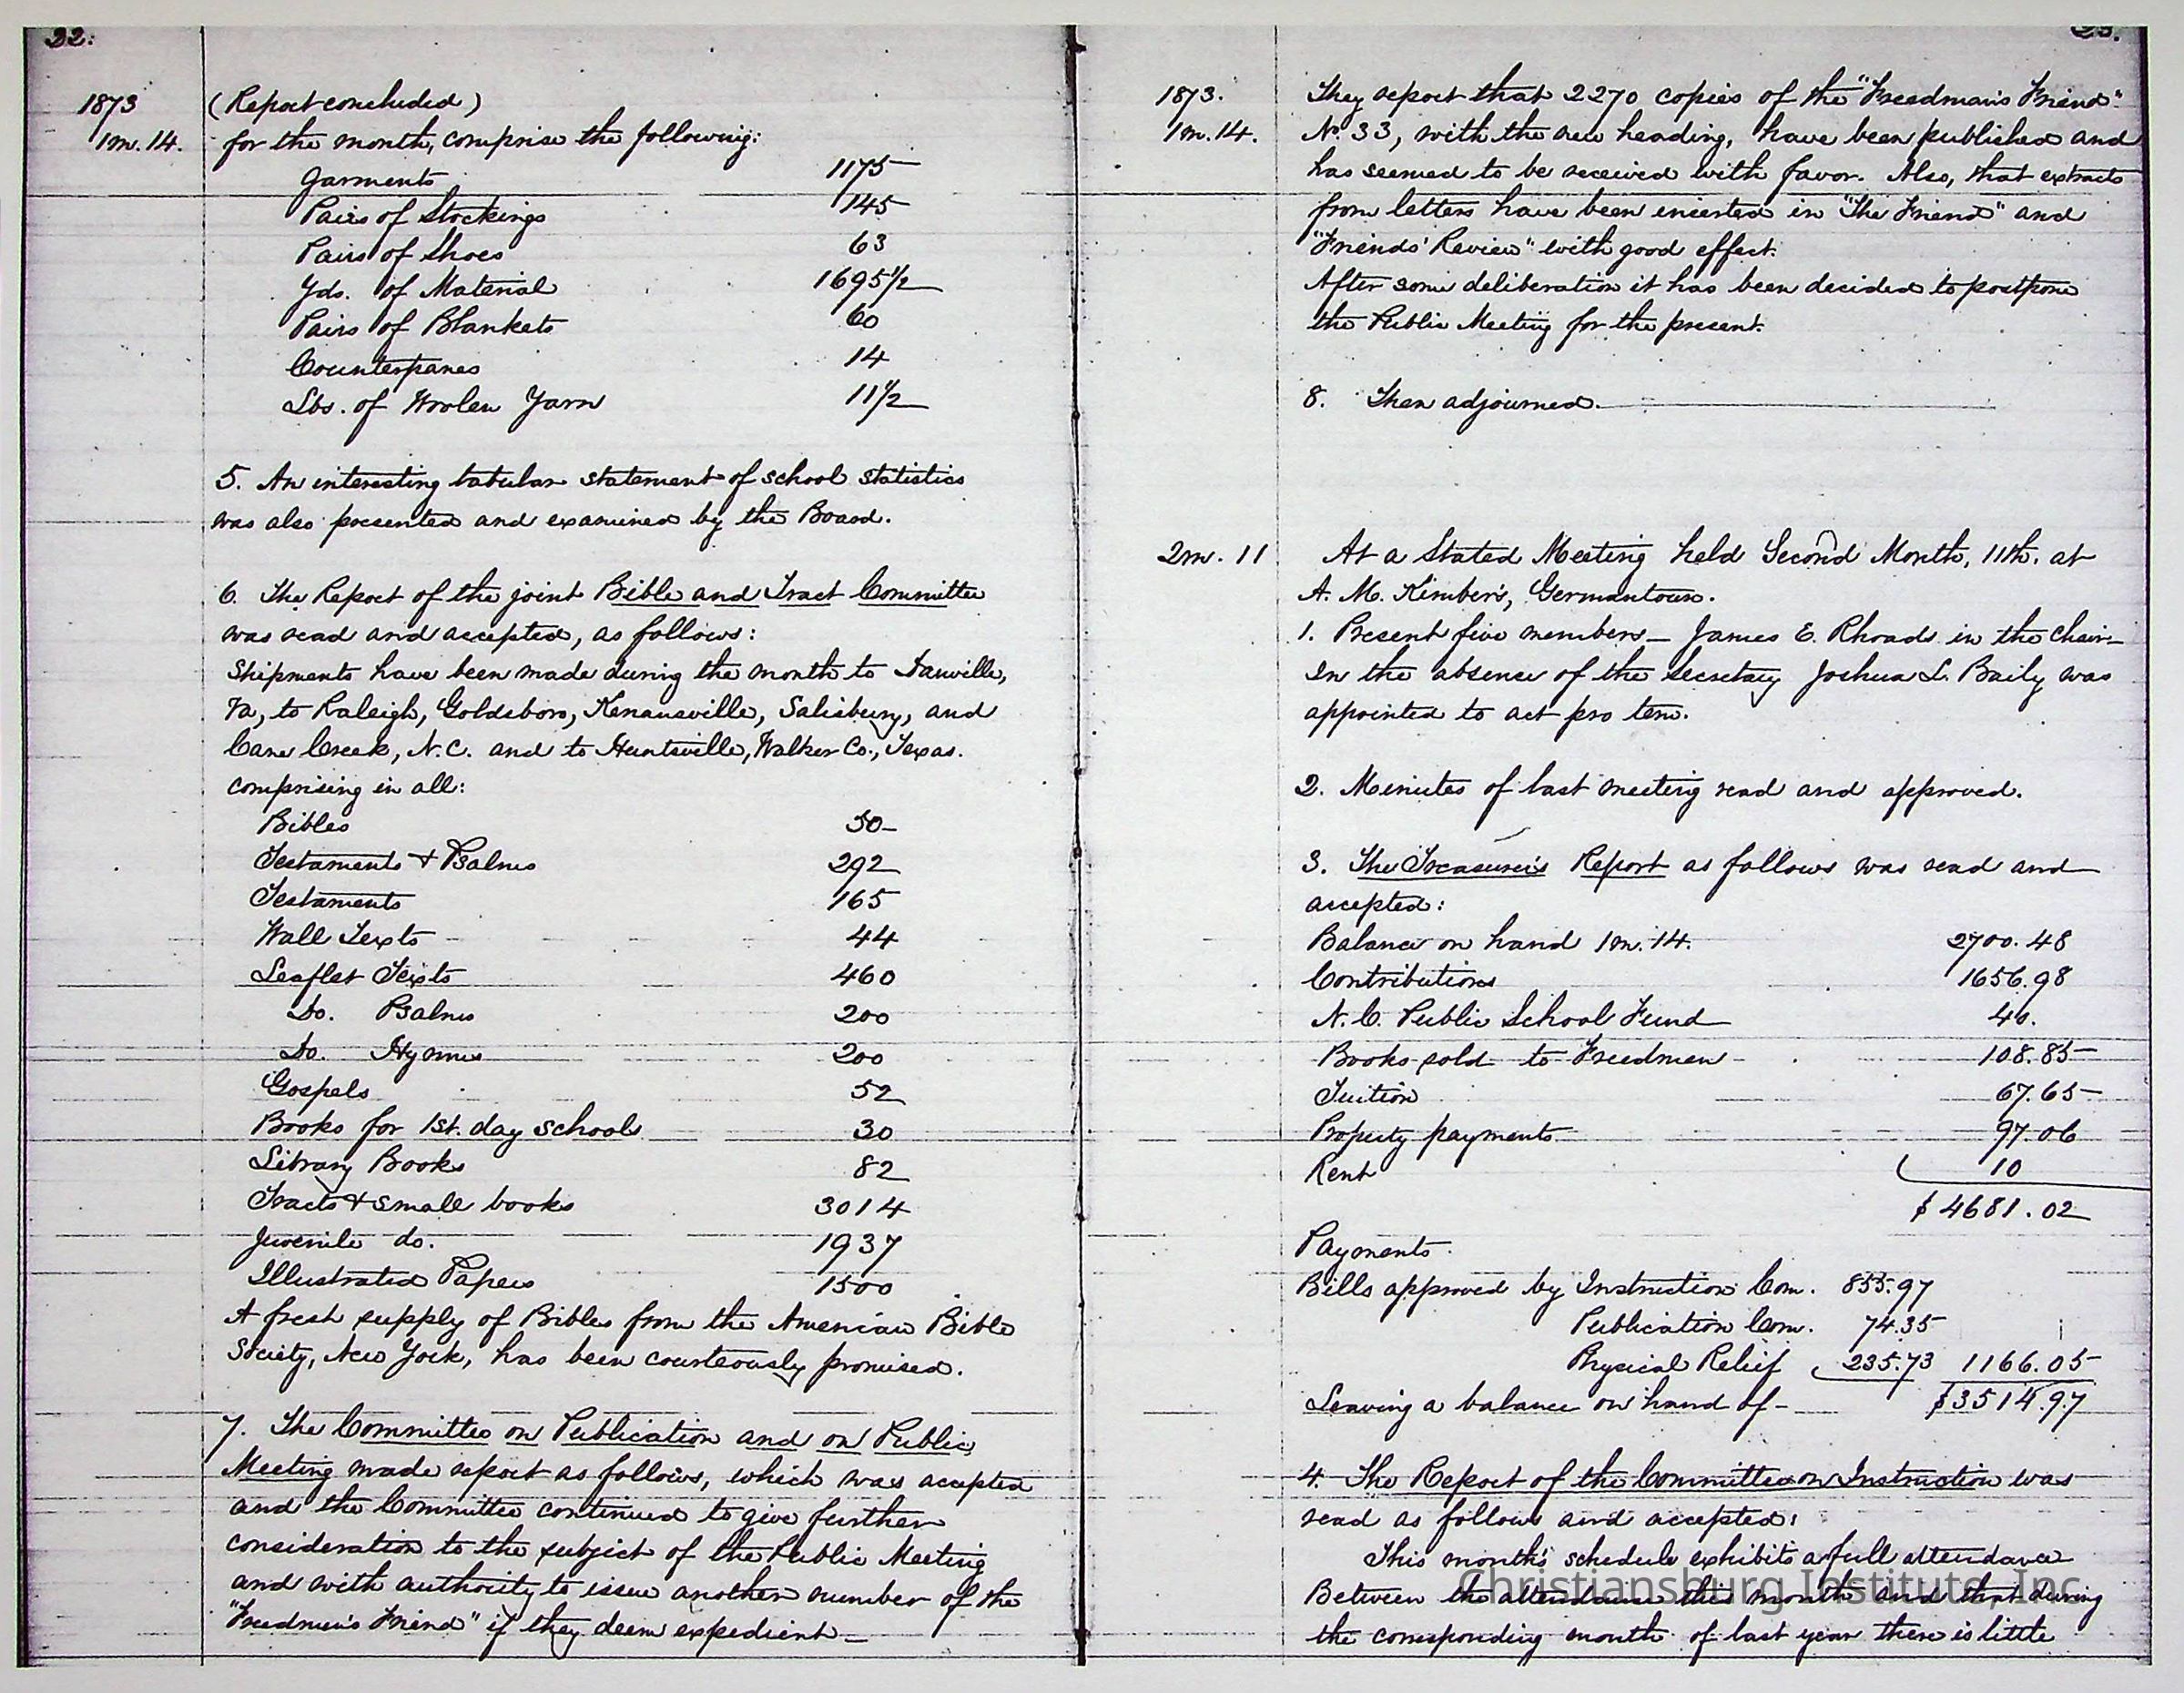 22:
1873
1m. 14.
(Report concluded)
for the month, comprise the following:
Garments 1175
Pairs of Stockings 145
Pairs of Shoes 63
Yds. of Material 1695 1/2
Pairs of Blankets 60
Counterpanes 14
Lbs. of Woolen Yarn 11 1/2
5. An interesting tabular statement of school statistics
was also presented and examined by the Board.
6. The Report of the joint Bible and Tract Committee
was read and accepted, as follows:
Shipments have been made during the month to Danville,
Va, to Raleigh, Goldsboro, Kenansville, Salisbury, and
Cane Creek, N.C. and to Huntsville, Walker Co., Texas.
comprising in all:
Bibles 50
Testaments & Psalms 292
Testaments 165
Wall Texts 44
Leaflet Texts 460
Do. Psalms 200
Do. Hymns 200
Gospels 52
Books for 1st. day schools 30
Library Books 82
Tracts & small books 3014
Juvenile do. 1937
Illustrated Papers 1500
A fresh supply of Bibles from the American Bible
Society, New York, has been courteously promised.
7. The Committee on Publication and on Public
Meeting made report as follows, which was accepted
and the Committee continued to give further
consideration to the subject of the Public Meeting
and with authority to issue another number of the
"Freedmen's Friend" if they deem expedient—
23.
1873.
1m. 14.
They report that 2270 copies of the "Freedman's Friend"
No. 33, with the new heading, have been published and
has seemed to be received with favor. Also, that extracts
from letters have been inserted in "The Friend" and
"Friends' Review" with good effect.
After some deliberation it has been decided to postpone
the Public Meeting for the present.
8. Then adjourned.
2m. 11
At a Stated Meeting held Second Month, 11th. at
A. M. Kimber's, Germantown.
1. Present five members— James E. Rhoads in the chair—
In the absence of the Secretary Joshua L. Baily was
appointed to act pro tem.
2. Minutes of last meeting read and approved.
3. The Treasurer's Report as follows was read and
accepted:
Balance on hand 1m. 14. 2700.48
Contributions 1656.98
N. C. Public School Fund 40.
Books sold to Freedmen 108.85
Tuition 67.65
Property payments 97.06
Rent 10
$ 4681.02
Payments.
Bills approved by Instruction Com. 855.97
Publication Com. 74.35
Physical Relief 235.73 1166.05
Leaving a balance on hand of— $3514.97
4. The Report of the Committee on Instruction was
read as follows and accepted:
This month's schedule exhibits a full attendance
Between the attendance this month and that during
the corresponding month of last year there is little
Christiansburg Institute, Inc.